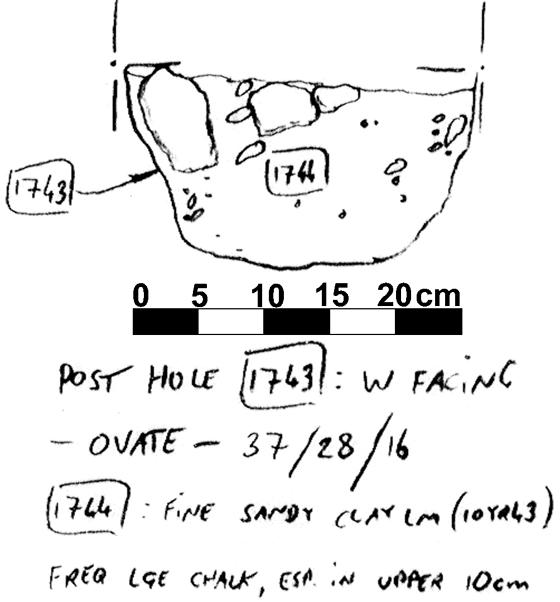 1743
1744
0 5 10 15 20cm
POST HOLE 1743 : W FACING
- OVATE - 37/28/16
1744 : FINE SANDY CLAY LM (10YR43)
FREQ LGE CHALK, ESP. IN UPPER 10cm